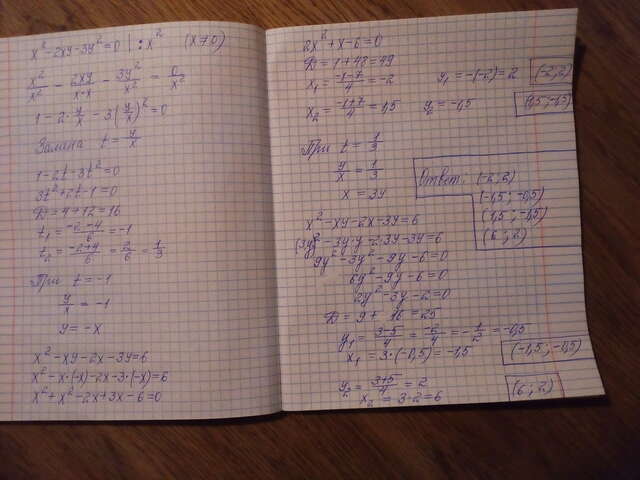 x² - 2xy - 3y² = 0 | : x² (x ≠ 0)
x²/x² - 2xy/x·x - 3y²/x² = 0/x²
1 - 2·y/x - 3(y/x)² = 0
Замена t = y/x
1 - 2t - 3t² = 0
3t² + 2t - 1 = 0
D = 4 + 12 = 16
t₁ = -2-4/6 = -1
t₂ = -2+4/6 = 2/6 = 1/3
При t = -1
y/x = -1
y = -x
x² - xy - 2x - 3y = 6
x² - x·(-x) - 2x - 3·(-x) = 6
x² + x² - 2x + 3x - 6 = 0
2x² + x - 6 = 0
D = 1 + 48 = 49
x₁ = -1-7/4 = -2 y₁ = -(-2) = 2 (-2; 2)
x₂ = -1+7/4 = 1,5 y₂ = -1,5 (1,5; -1,5)
При t = 1/3
y/x = 1/3
x = 3y
Ответ: (-2; 2)
(-1,5; -0,5)
(1,5; -1,5)
(6; 2)
x² - xy - 2x - 3y = 6
(3y)² - 3y·y - 2·3y - 3y = 6
9y² - 3y² - 9y - 6 = 0
6y² - 9y - 6 = 0
2y² - 3y - 2 = 0
D = 9 + 16 = 25
y₁ = 3-5/4 = -2/4 = -1/2 = -0,5
x₁ = 3·(-0,5) = -1,5 (-1,5; -0,5)
y₂ = 3+5/4 = 2
x₂ = 3·2 = 6 (6; 2)